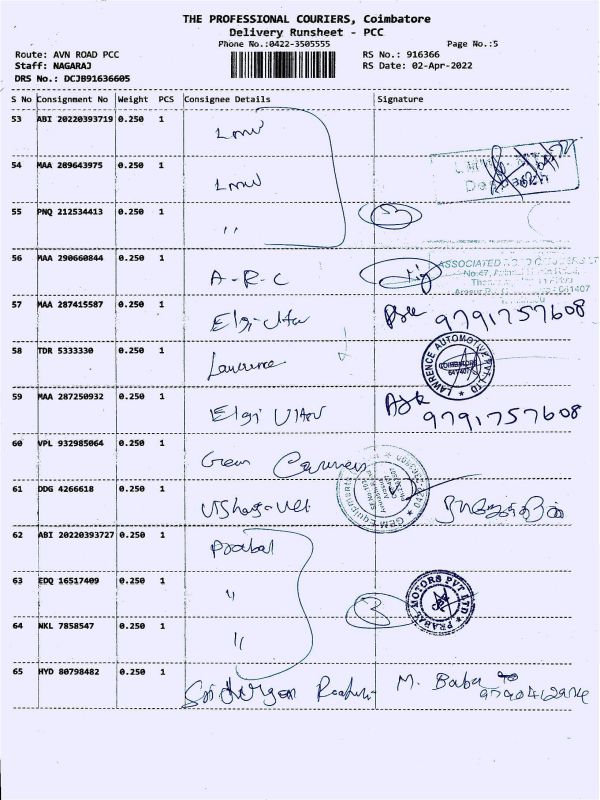 THE PROFESSIONAL COURIERS, Coimbatore
Delivery Runsheet - PCC
Phone No.:0422-3505555 Page No.:5
Route: AVN ROAD PCC RS No.: 916366
Staff: NAGARAJ RS Date: 02-Apr-2022
DRS No.: DCJB91636605
S No Consignment No Weight PCS Consignee Details Signature
53 ABI 20220393719 0.250 1 LMW
54 MAA 289643975 0.250 1 LMW
55 PNQ 212534413 0.250 1 " 3
56 MAA 290660844 0.250 1 A-R-C
ASSOCIATED ROAD CARRIERS LT
57 MAA 287415587 0.250 1 Elgi Ultra 9791757608
58 TDR 5333330 0.250 1 Lawrence
LAWRENCE AUTOMOTIVE PVT LTD
COIMBATORE
641407
59 MAA 287250932 0.250 1 Elgi Ultra 9791757608
60 VPL 932985064 0.250 1
GEM Equipments
61 DDG 4266618 0.250 1
62 ABI 20220393727 0.250 1 Prabal
63 EDQ 16517409 0.250 1 " 3
PRABAL MOTORS PVT LTD
64 NKL 7858547 0.250 1 "
65 HYD 80798482 0.250 1 M. Baba